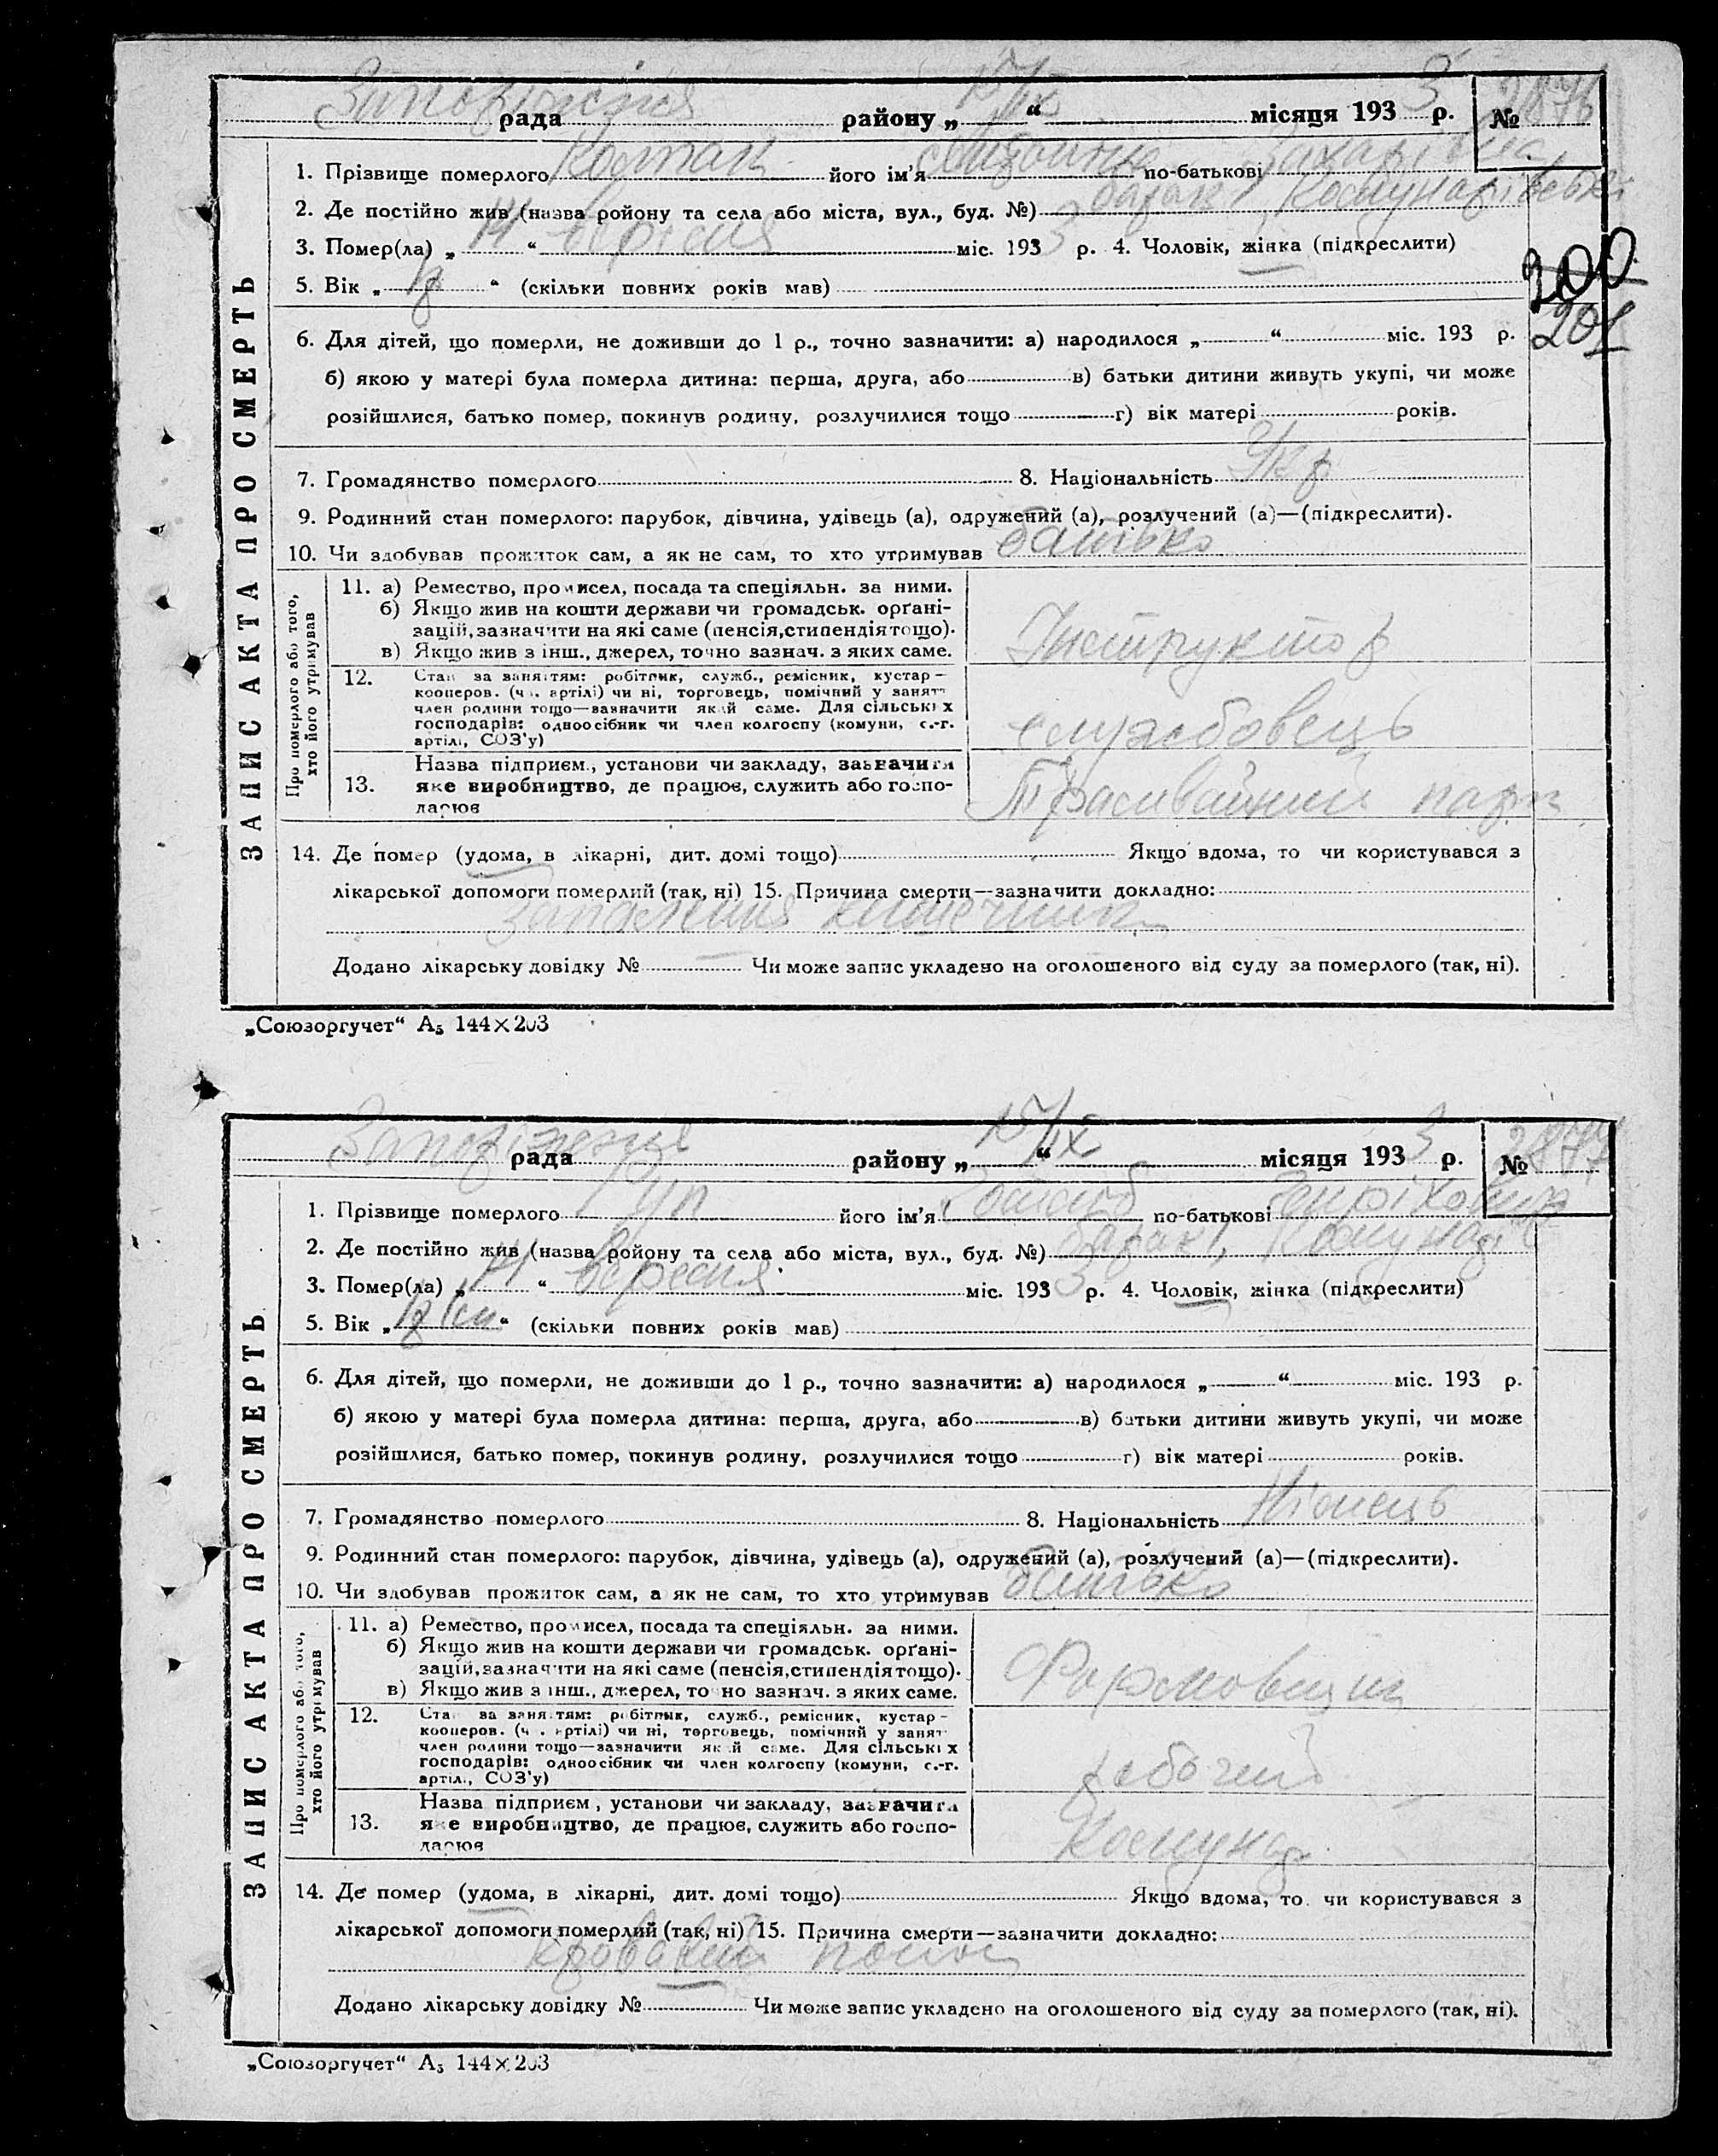 Запоріжжя рада району „ 15/IX “ місяця 193 3 р. № 2876
1. Прізвище померлого Колпак його ім'я по-батькові Захарівна
2. Де постійно жив (назва ройону та села або міста, вул., буд. №) барак 1, Комунарівській
3. Помер(ла) „ 14 “ вересня міс. 193 3 р. 4. Чоловік, жінка (підкреслити)
5. Вік „ 1 р “ (скільки повних років мав)
300
201
6. Для дітей, що померли, не доживши до 1 р., точно зазначити: а) народилося „ “ міс. 193 р.
б) якою у матері була померла дитина: перша, друга, або в) батьки дитини живуть укупі, чи може
розійшлися, батько помер, покинув родину, розлучилися тощо г) вік матері років.
7. Громадянство померлого 8. Національність Укр
9. Родинний стан померлого: парубок, дівчина, удівець (а), одружений (а), розлучений (а)—(підкреслити).
10. Чи здобував прожиток сам, а як не сам, то хто утримував батько
ЗАПИС АКТА ПРО СМЕРТЬ
Про померлого або того,
хто його утримував
11. а) Ремество, промисел, посада та спеціяльн. за ними.
б) Якщо жив на кошти держави чи громадськ. орґані-
зацій, зазначити на які саме (пенсія, стипендія тощо).
в) Якщо жив з інш., джерел, точно зазнач. з яких саме.
Інструктор
12. Стан за заняттям: робітник, служб., ремісник, кустар—
кооперов. (чл. артілі) чи ні, торговець, помічний у занятт
член родини тощо—зазначити який саме. Для сільських
господарів: одноосібник чи член колгоспу (комуни, с.-г.
артілі, СОЗ'у)
службовець
13. Назва підприєм., установи чи закладу, зазначити
яке виробництво, де працює, служить або госпо-
дарює
Трамвайний парк
14. Де помер (удома, в лікарні, дит. домі тощо) Якщо вдома, то чи користувався з
лікарської допомоги померлий (так, ні) 15. Причина смерти—зазначити докладно:
Запалення кишечника
Додано лікарську довідку № Чи може запис укладено на оголошеного від суду за померлого (так, ні).
„Союзоргучет“ А5 144×203
Запоріжжя рада району „ 15/IX “ місяця 193 3 р. № 2877
1. Прізвище померлого його ім'я по-батькові Генріхович
2. Де постійно жив (назва ройону та села або міста, вул., буд. №) барак 1, Комунарів
3. Помер(ла) „ 14 “ вересня міс. 193 3 р. 4. Чоловік, жінка (підкреслити)
5. Вік „ 1 р 1 м “ (скільки повних років мав)
6. Для дітей, що померли, не доживши до 1 р., точно зазначити: а) народилося „ “ міс. 193 р.
б) якою у матері була померла дитина: перша, друга, або в) батьки дитини живуть укупі, чи може
розійшлися, батько помер, покинув родину, розлучилися тощо г) вік матері років.
7. Громадянство померлого 8. Національність Німець
9. Родинний стан померлого: парубок, дівчина, удівець (а), одружений (а), розлучений (а)—(підкреслити).
10. Чи здобував прожиток сам, а як не сам, то хто утримував батько
ЗАПИС АКТА ПРО СМЕРТЬ
Про померлого або того,
хто його утримував
11. а) Ремество, промисел, посада та спеціяльн. за ними.
б) Якщо жив на кошти держави чи громадськ. орґані-
зацій, зазначити на які саме (пенсія, стипендія тощо).
в) Якщо жив з інш., джерел, точно зазнач. з яких саме.
Формовщик
12. Стан за заняттям: робітник, служб., ремісник, кустар—
кооперов. (чл. артілі) чи ні, торговець, помічний у занятт
член родини тощо—зазначити який саме. Для сільських
господарів: одноосібник чи член колгоспу (комуни, с.-г.
артілі, СОЗ'у)
робочий
13. Назва підприєм., установи чи закладу, зазначити
яке виробництво, де працює, служить або госпо-
дарює
Комунар
14. Де помер (удома, в лікарні, дит. домі тощо) Якщо вдома, то чи користувався з
лікарської допомоги померлий (так, ні) 15. Причина смерти—зазначити докладно:
кровавий понос
Додано лікарську довідку № Чи може запис укладено на оголошеного від суду за померлого (так, ні).
„Союзоргучет“ А5 144×203